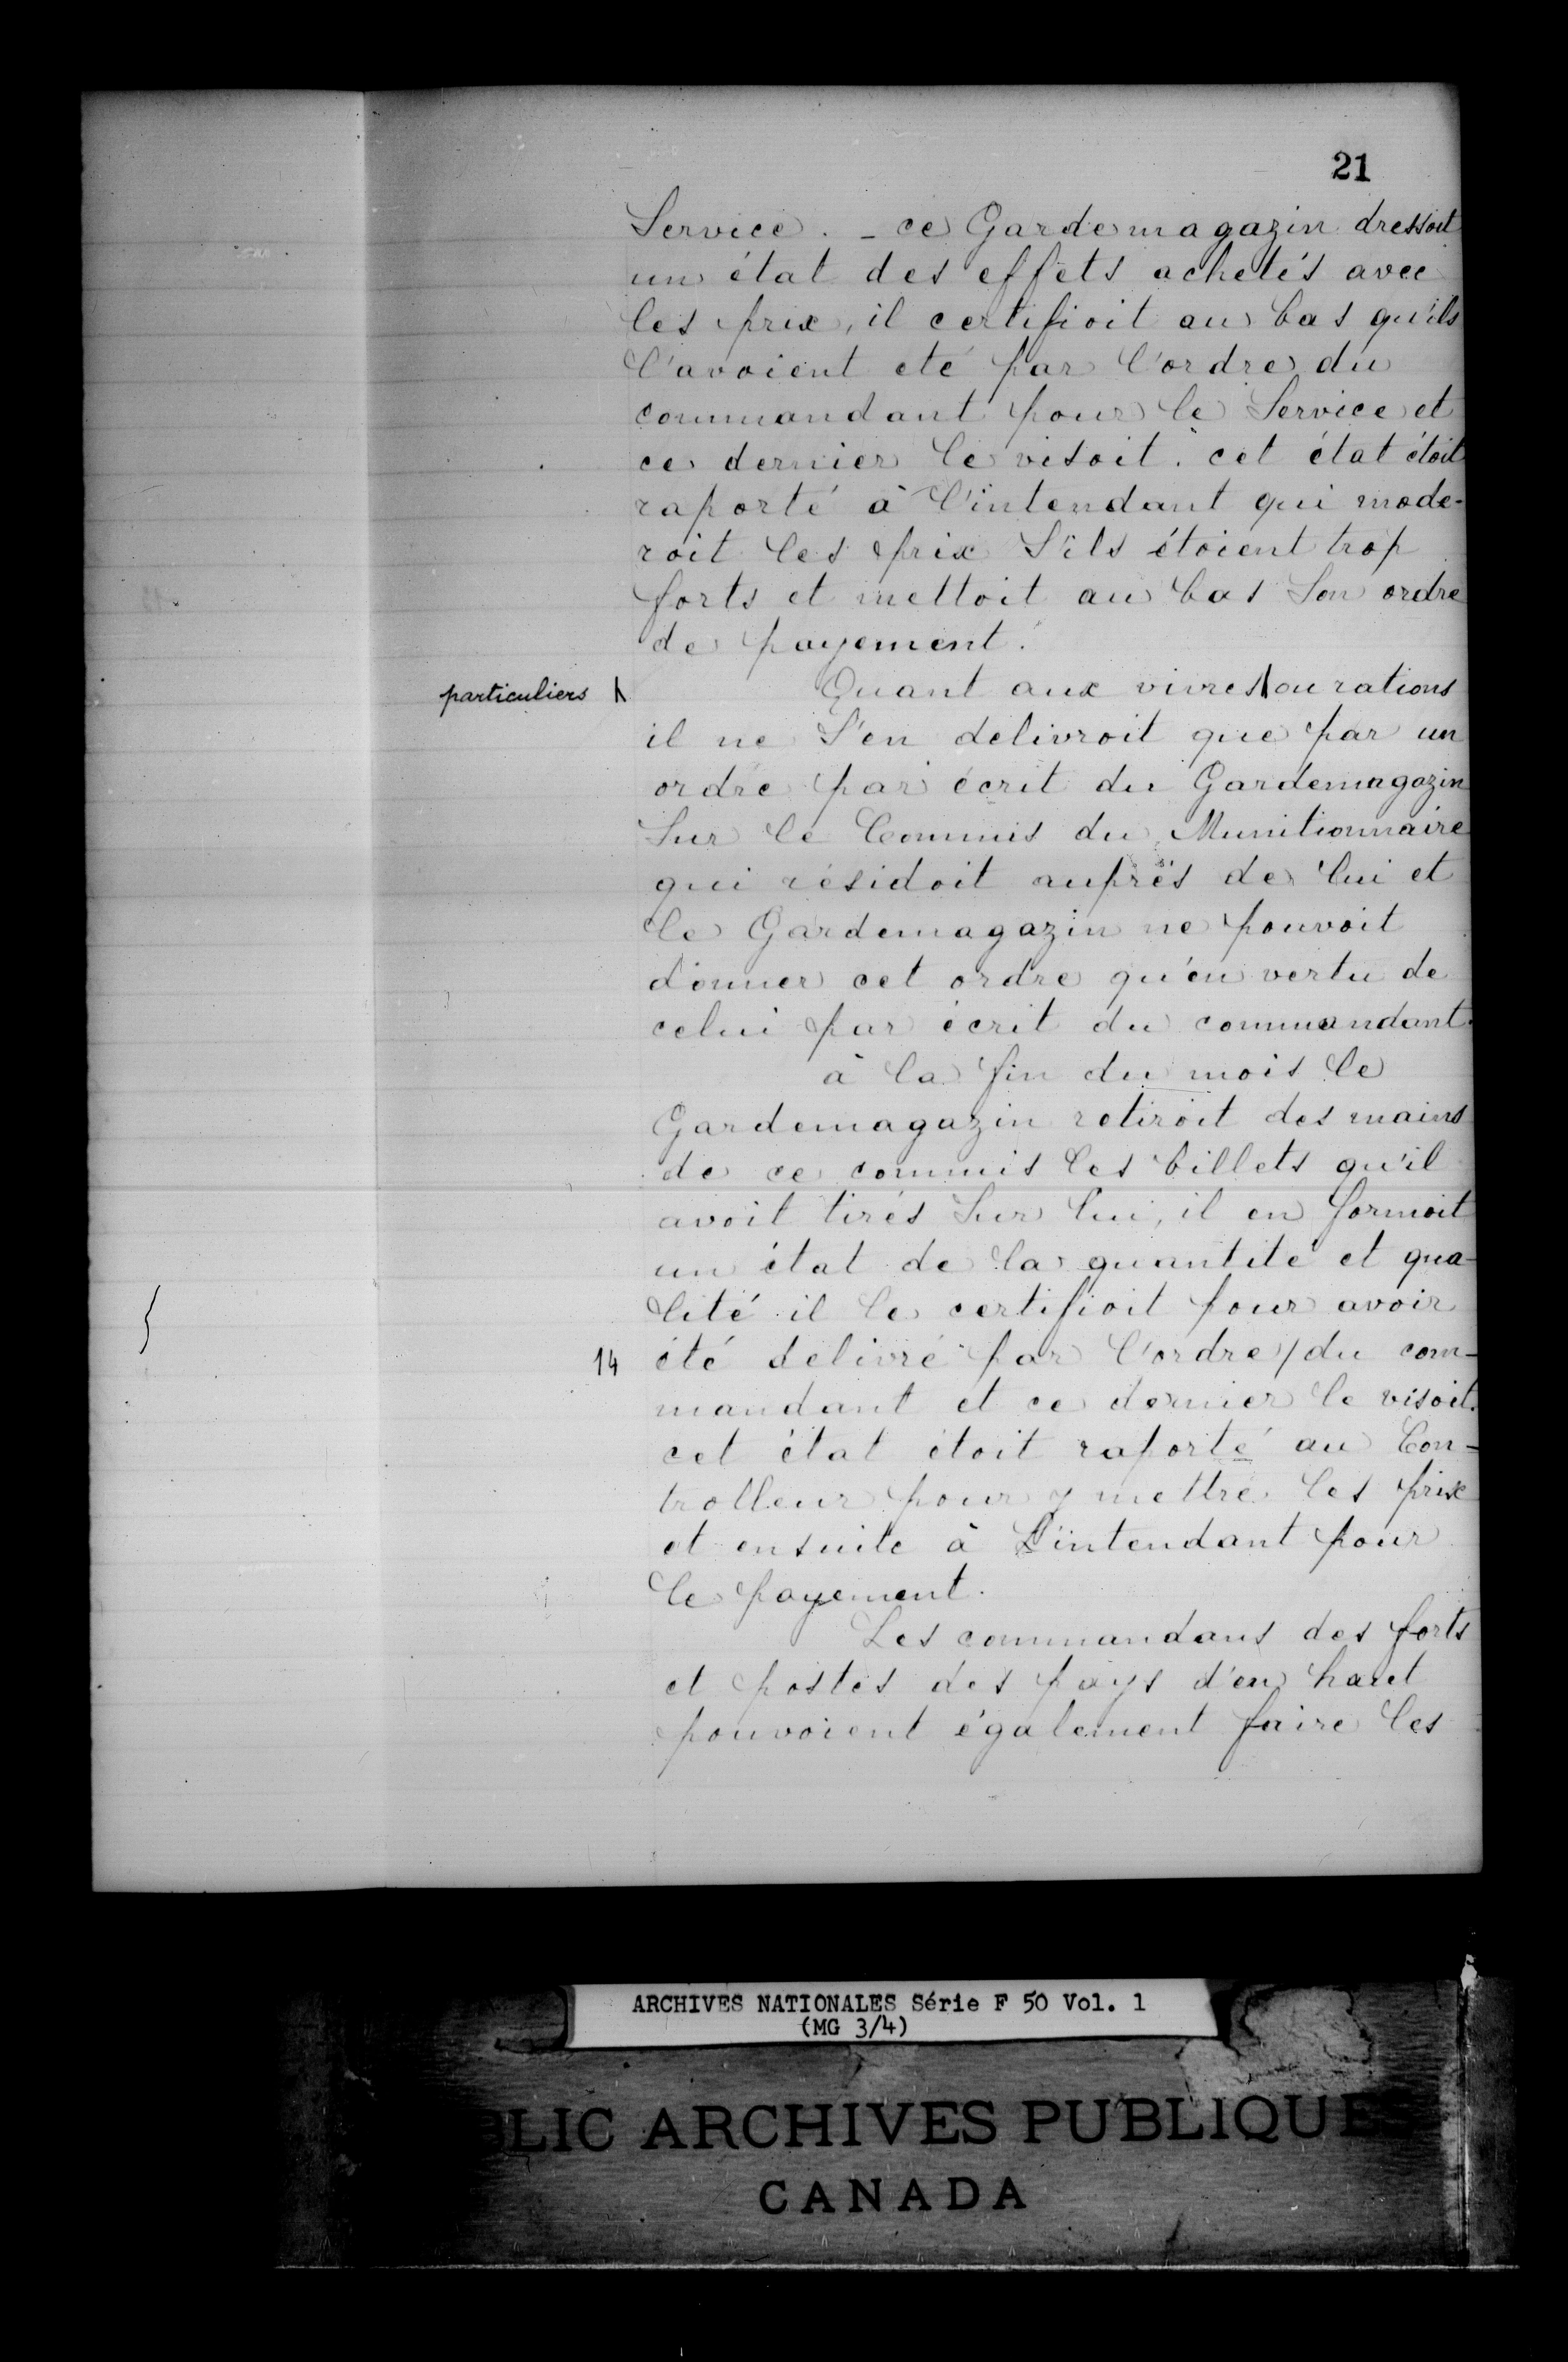 21
Service. - ce Gardemagazin dressoit
un état des effets achetés avec
les prix, il certifioit au bas qu'ils
l'avoient eté par l'ordre du
commandant pour le Service et
ce dernier le visoit. cet état étoit
raporté à l'intendant qui mode-
roit les prix S'ils étoient trop
forts et mettoit au bas Son ordre
de payement.
particuliers \ Quant aux vivres \ ou rations
il ne S'en delivroit que par un
ordre par écrit du Gardemagazin
Sur le Commis du Munitionnaire
qui résidoit auprès de lui et
le Gardemagazin ne pouvoit
donner cet ordre qu'en vertu de
celui par écrit du commandant.
à la fin du mois le
Gardemagazin retiroit des mains
de ce commis les billets qu'il
avoit tirés Sur lui, il en formoit
un état de la quantité et qua-
lité il le certifioit pour avoir
14 été delivré par l'ordre / du com-
mandant et ce dernier le visoit.
cet état étoit raporté au Con-
trolleur pour y mettre les prix
et ensuite à L'intendant pour
le payement.
Les commandans des forts
et postes des pays d'en haut
pouvoient également faire les
ARCHIVES NATIONALES Série F 50 Vol. 1
(MG 3/4)
BLIC ARCHIVES PUBLIQUE
CANADA